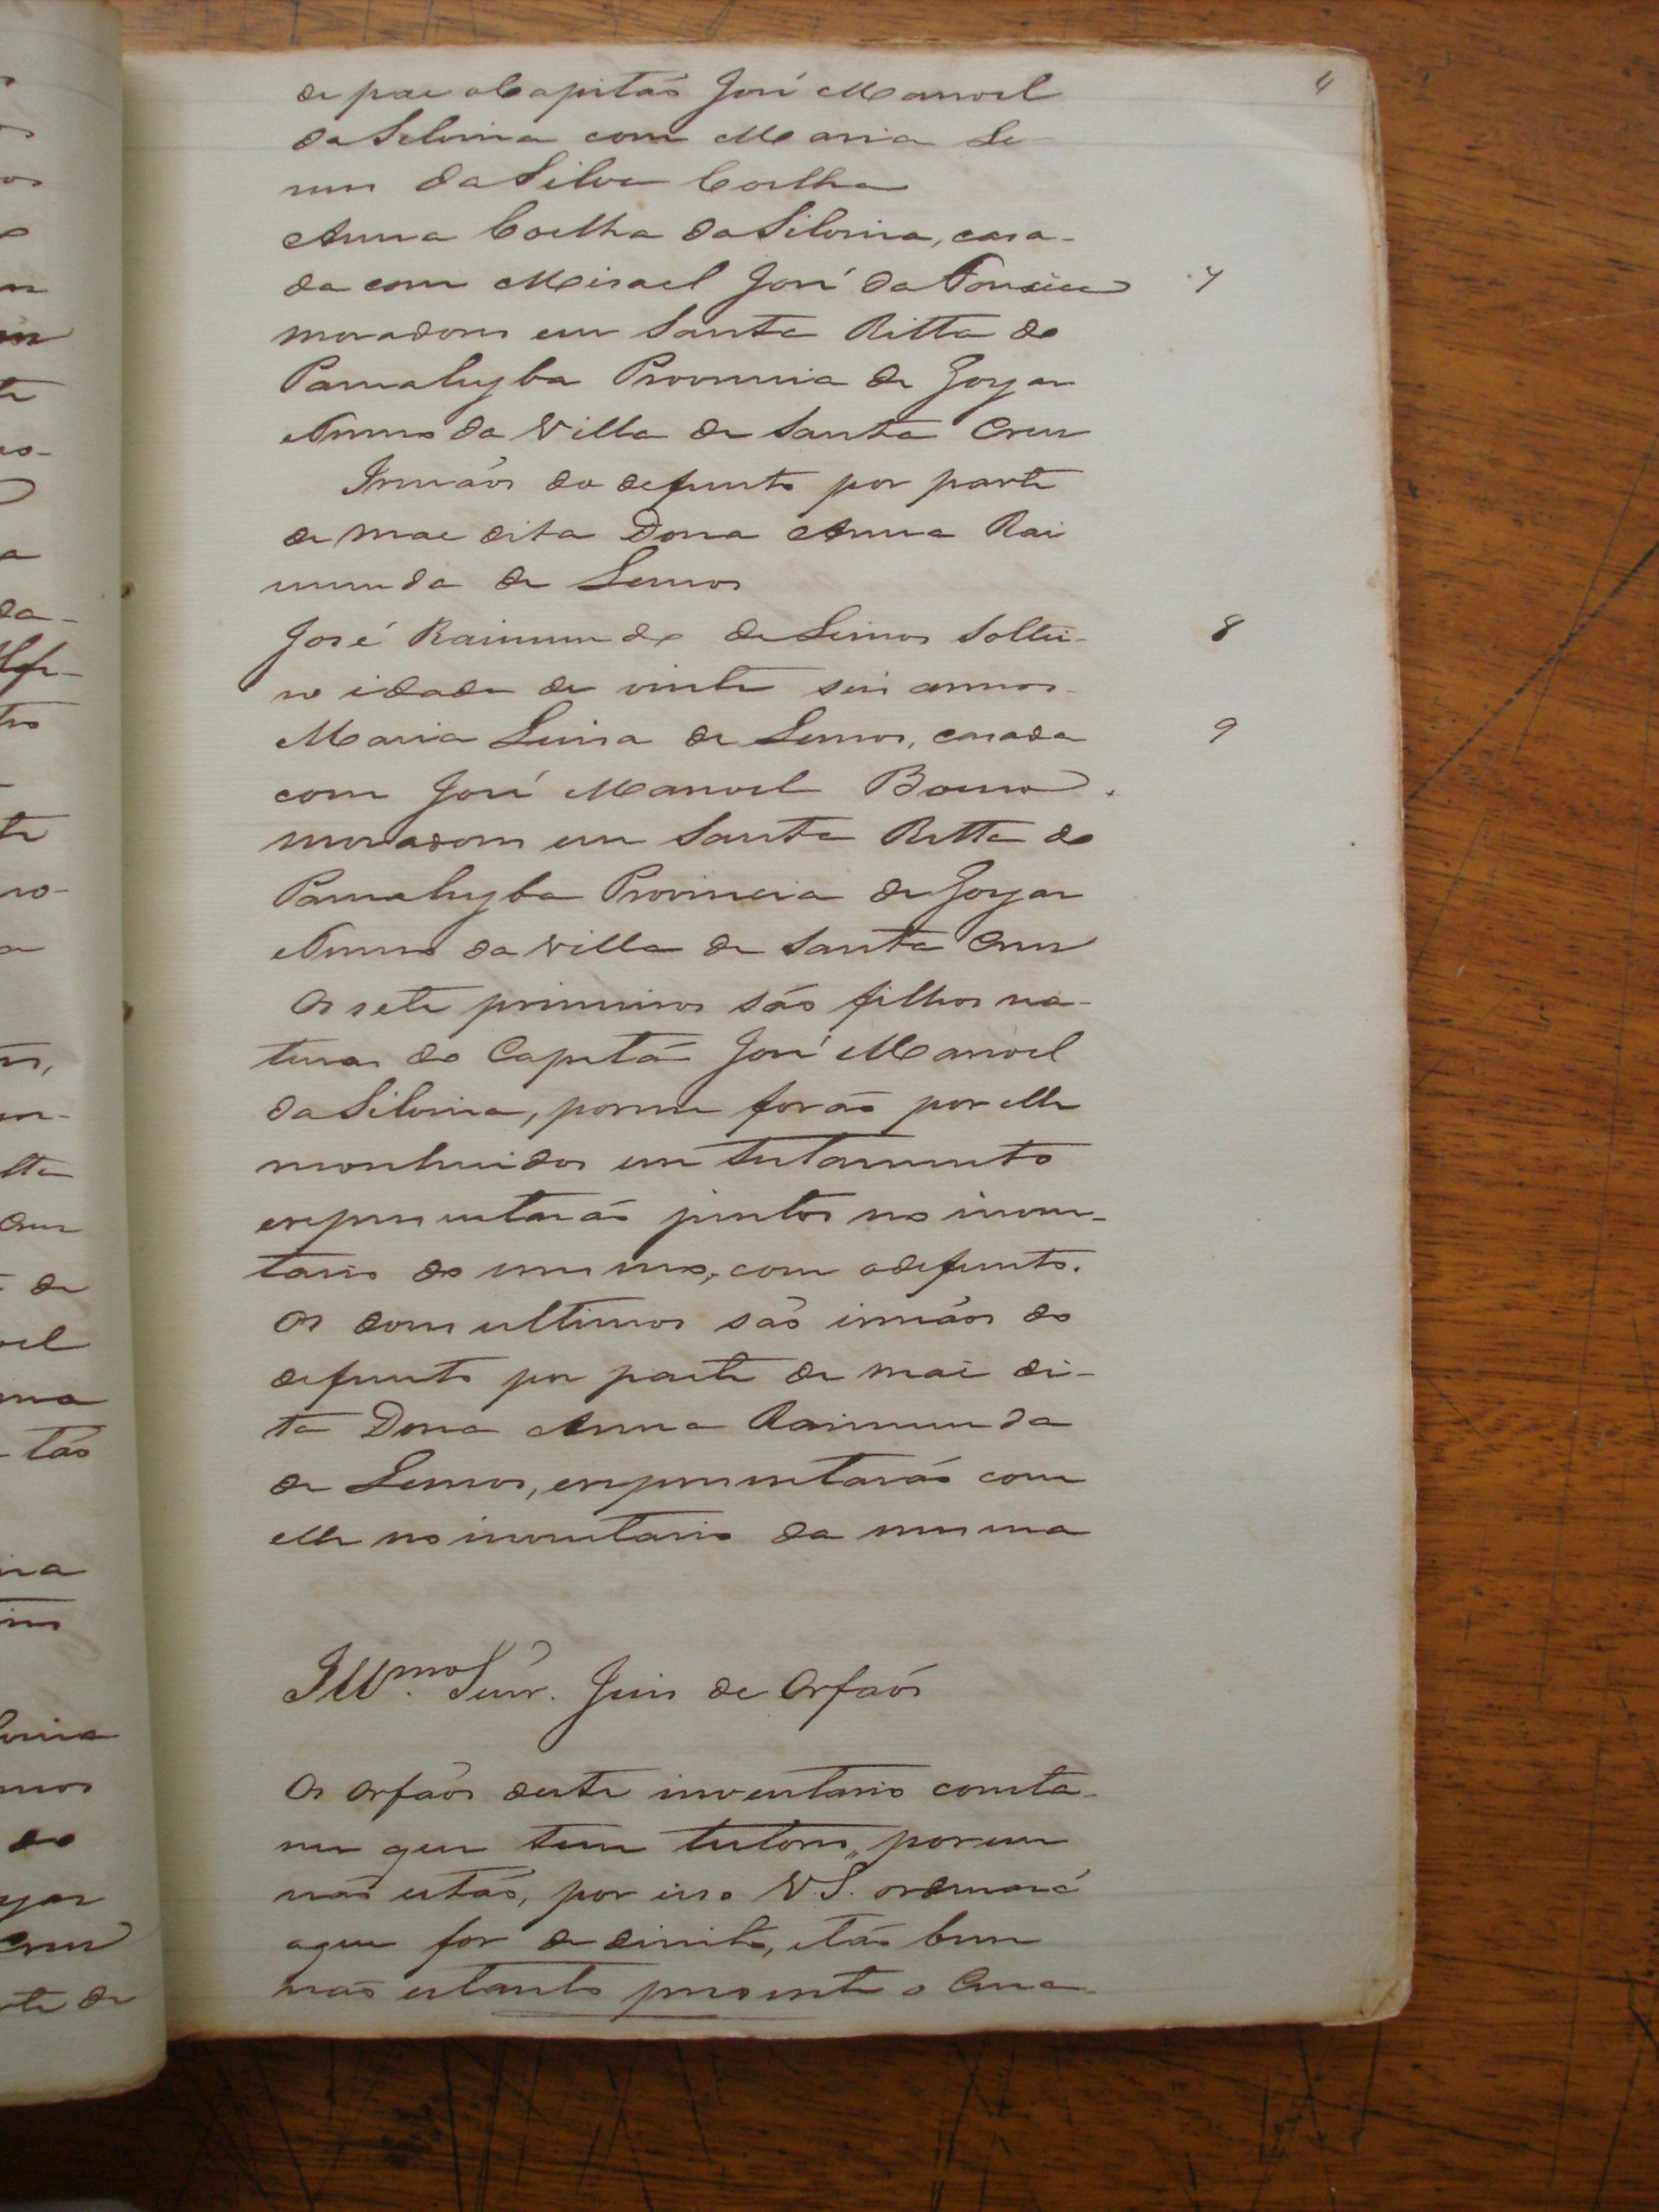 4
de pae o Capitão José Manoel
da Silveira com Maria Le
mes da Silva Coelha
Anna Coelha da Silveira, casa-
da com Misael José da Fonseca 7
moradores em Santa Ritta do
Parnahyba Provincia de Goyas
termo da Villa de Santa Crus
Irmãos do defunto por parte
de mae dita Dona Anna Rai
munda de Lemos
José Raimundo de Lemos soltei- 8
ro idade de vinte seis annos
Maria Luisa de Lemos, casada 9
com José Manoel Bueno
moradores em Santa Ritta do
Parnahyba Provincia de Goyas
termo da Villa de Santa Crus
Os sete primeiros são filhos na-
turaes do Capitão José Manoel
da Silveira, porem forão por elle
reconhecidos em testamento
e representarão juntos no inven-
tario do mesmo, com o defunto.
Os dous ultimos são irmãos do
defunto por parte de mai di-
ta Dona Anna Raimunda
de Lemos, e representarão com
elle no inventario da mesma
Illmo. Senr. Juis de Orfaõs
Os Orfaõs deste inventario consta-
me que tem tutores, porem
não estão, por isso V. S. ordenará
o que for de direito, e tão bem
não estanto presente o Cura-